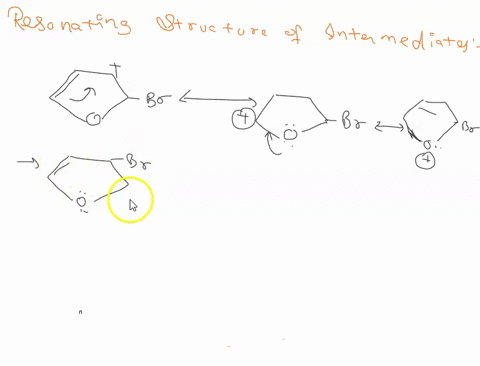 Resonating Structure of Intermediates:-
+
Br
O
+
O
Br
Br
O
+
Br
O